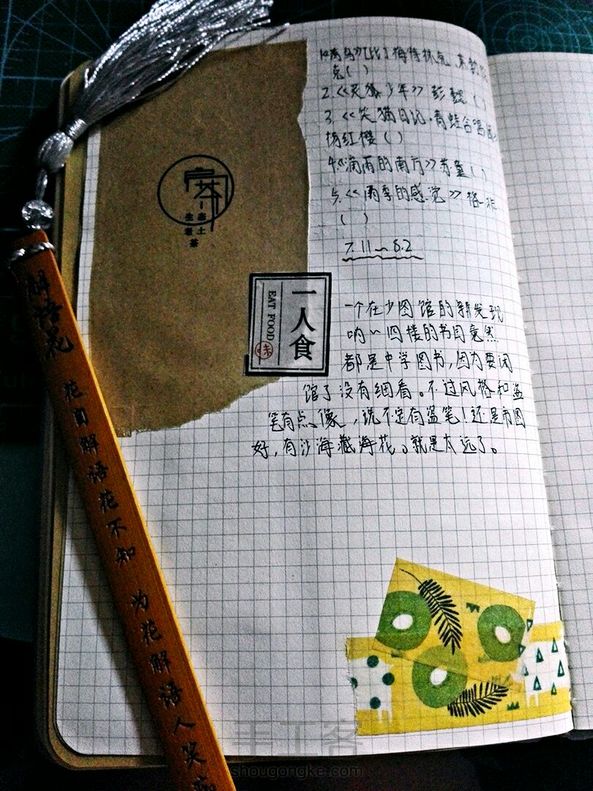 梅特林克
克( )
2.《 少年》彭懿( )
3.《笑猫日记·青蛙合唱
杨红樱( )
4《 雨的南方》苏童( )
5.《雨季的感觉》格非
( )
7.11~8.2
一人食
EAT FOOD
味
一个在少图馆的新发现
哟~四楼的书目竟然
都是中学图书,因为要闭
馆了没有细看。不过风格和盗
笔有点像,说不定有盗笔!还是市图
好,有沙海藏海花。就是太远了。
解语花
花自解语花不知 为花解语人笑
手工客
shougongke.com